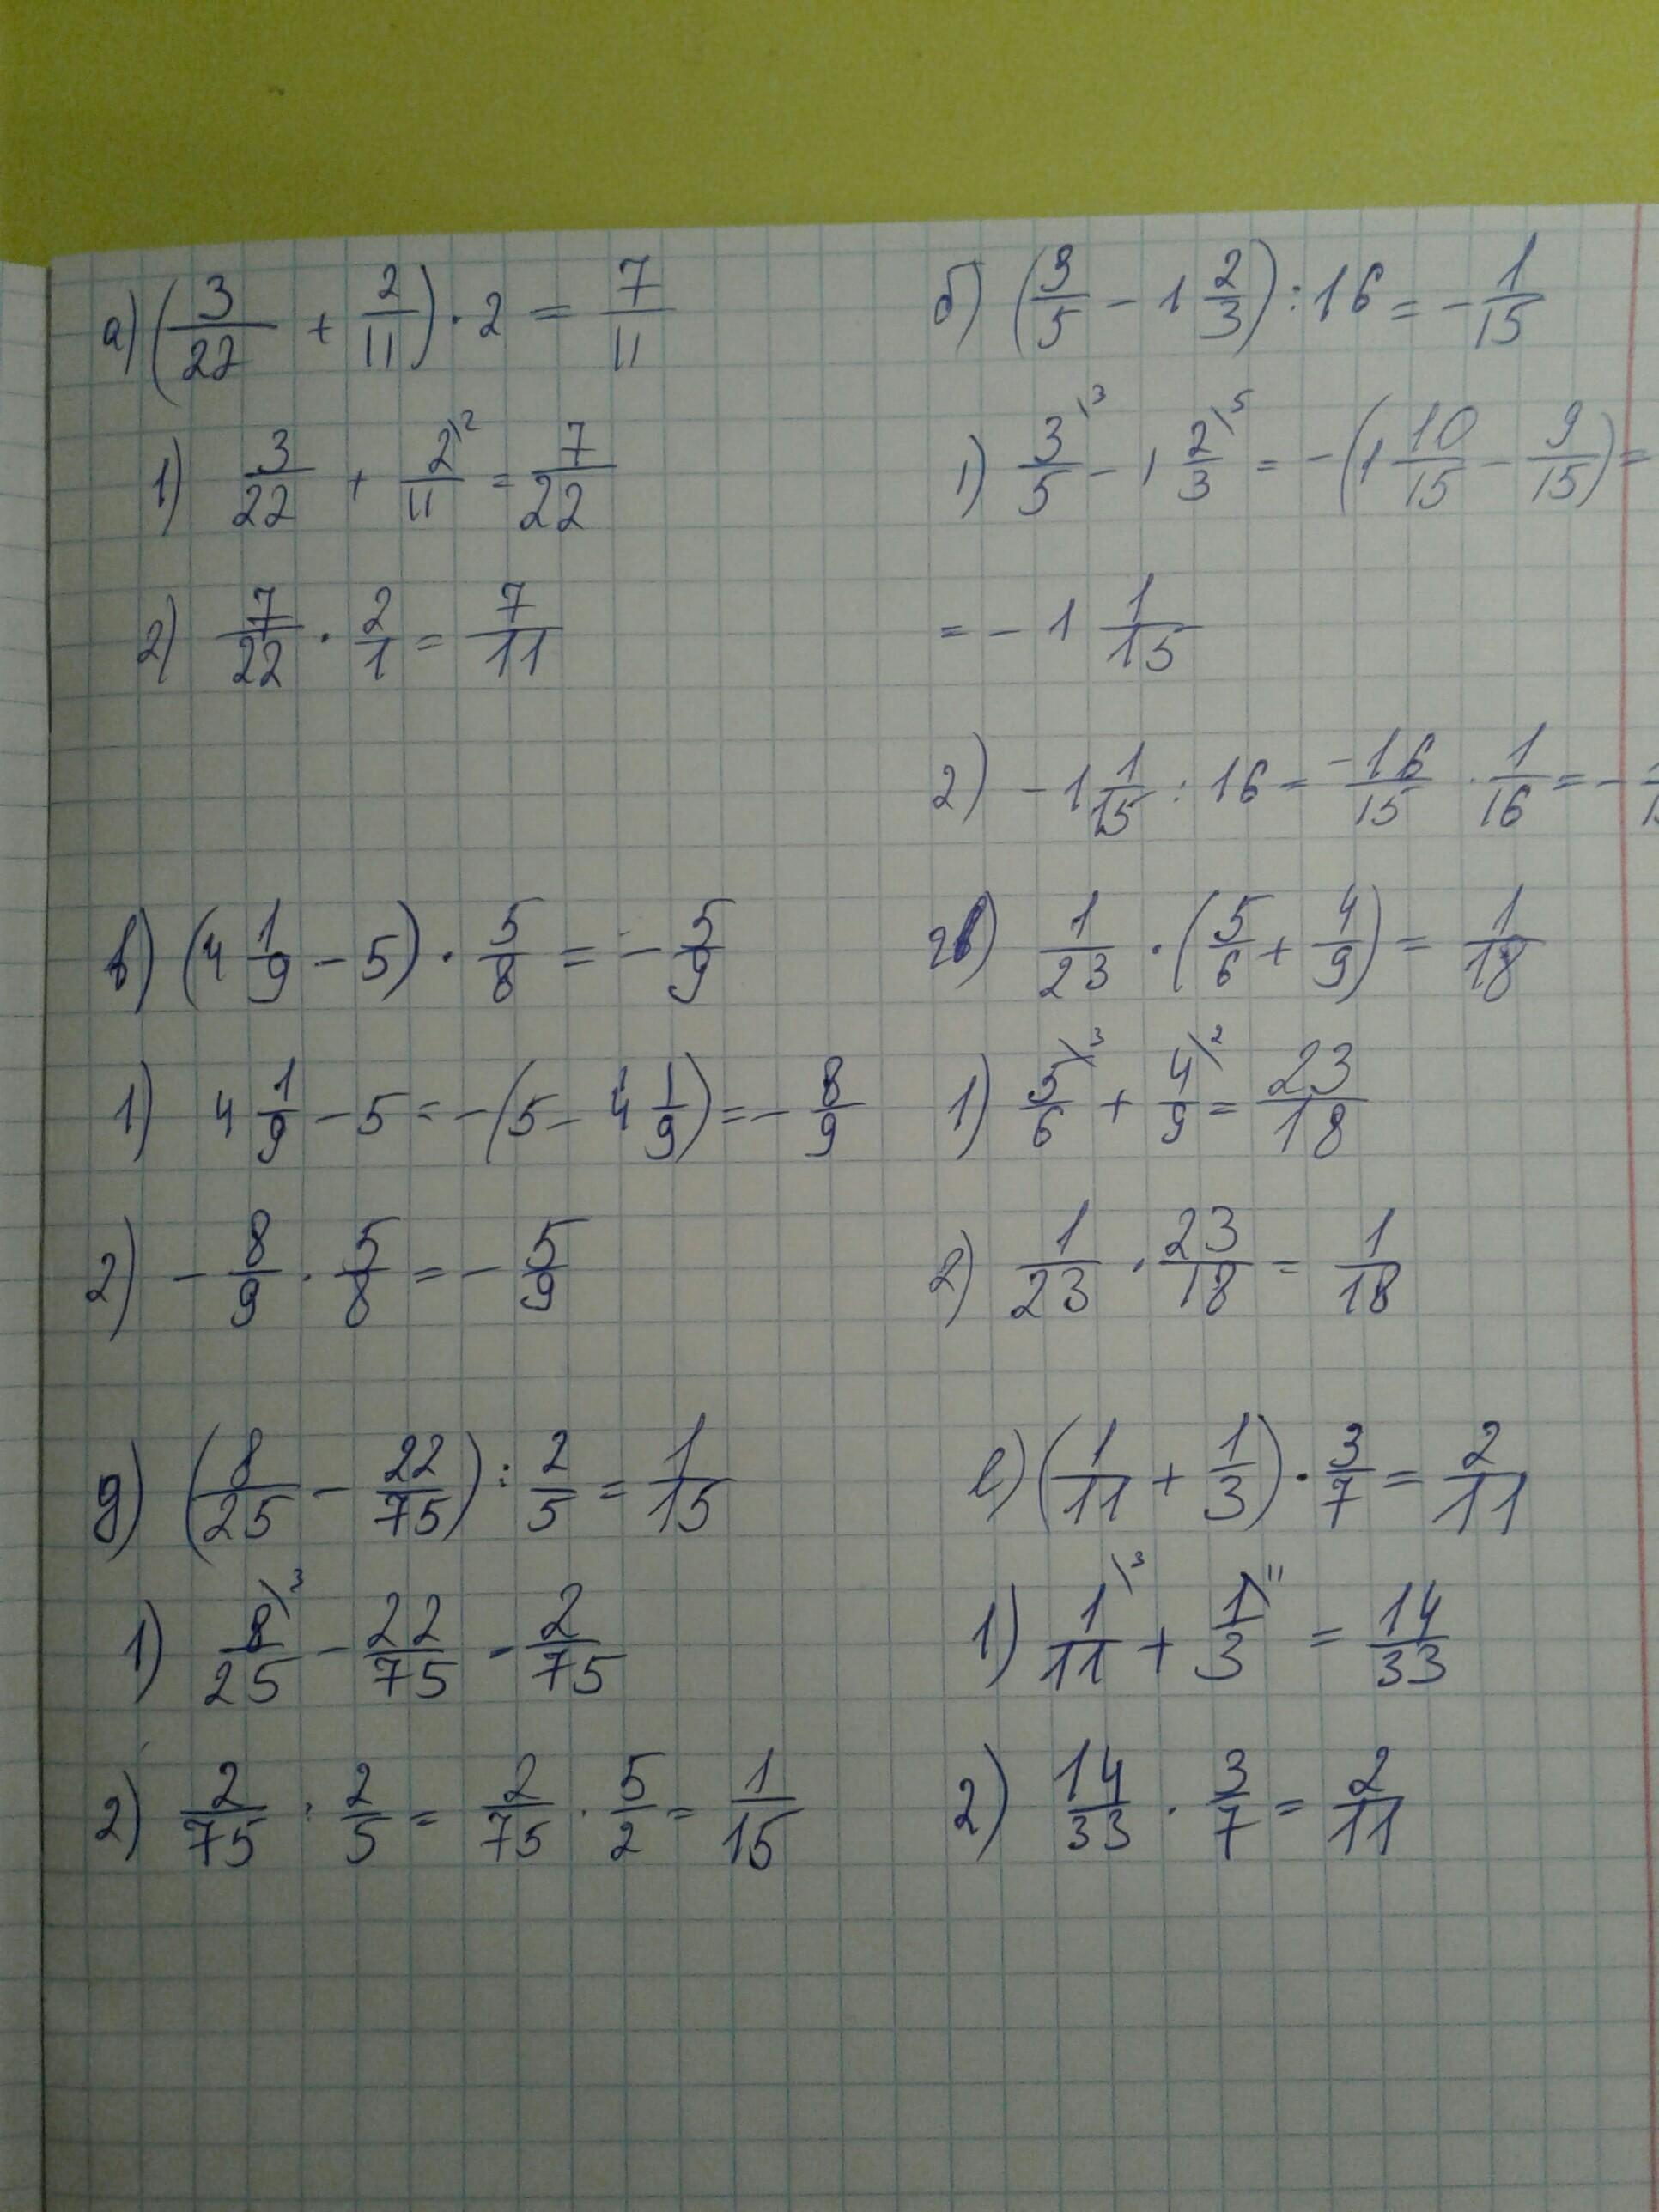 а) (3/22 + 2/11) · 2 = 7/11
1) 3/22 + 2\2/11 = 7/22
2) 7/22 · 2/1 = 7/11
б) (3/5 - 1 2/3) : 16 = - 1/15
1) 3\3/5 - 1 2\5/3 = - (1 10/15 - 9/15) =
= - 1 1/15
2) - 1 1/15 : 16 = -16/15 · 1/16 = -
в) (4 1/9 - 5) · 5/8 = - 5/9
1) 4 1/9 - 5 = - (5 - 4 1/9) = - 8/9
2) - 8/9 · 5/8 = - 5/9
г) 1/23 · (5/6 + 4/9) = 1/18
1) 5\3/6 + 4\2/9 = 23/18
2) 1/23 · 23/18 = 1/18
д) (8/25 - 22/75) : 2/5 = 1/15
1) 8\3/25 - 22/75 = 2/75
2) 2/75 : 2/5 = 2/75 · 5/2 = 1/15
е) (1/11 + 1/3) · 3/7 = 2/11
1) 1\3/11 + 1\11/3 = 14/33
2) 14/33 · 3/7 = 2/11